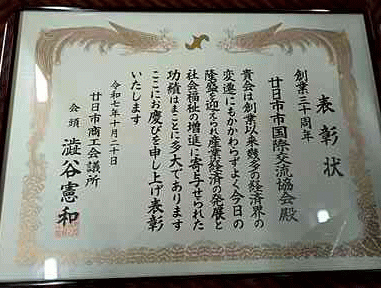 表彰状
創業三十周年
廿日市市国際交流協会殿
貴会は創業以来幾多の経済界の
変遷にもかかわらずよく今日の
隆盛を迎えられ産業経済の発展と
社会福祉の増進に寄与せられた
功績はまことに多大であります
ここにお慶びを申し上げ表彰
いたします
令和七年十月二十日
廿日市商工会議所
会頭 澁谷憲和